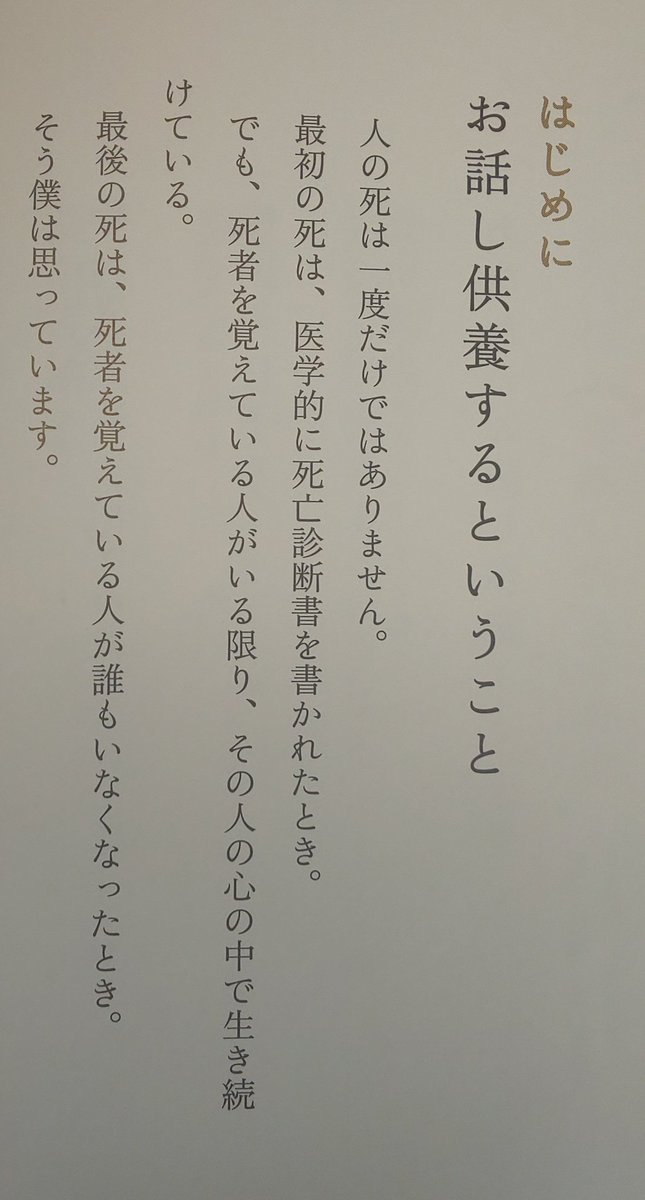 はじめに
お話し供養するということ
人の死は一度だけではありません。
最初の死は、医学的に死亡診断書を書かれたとき。
でも、死者を覚えている人がいる限り、その人の心の中で生き続
けている。
最後の死は、死者を覚えている人が誰もいなくなったとき。
そう僕は思っています。